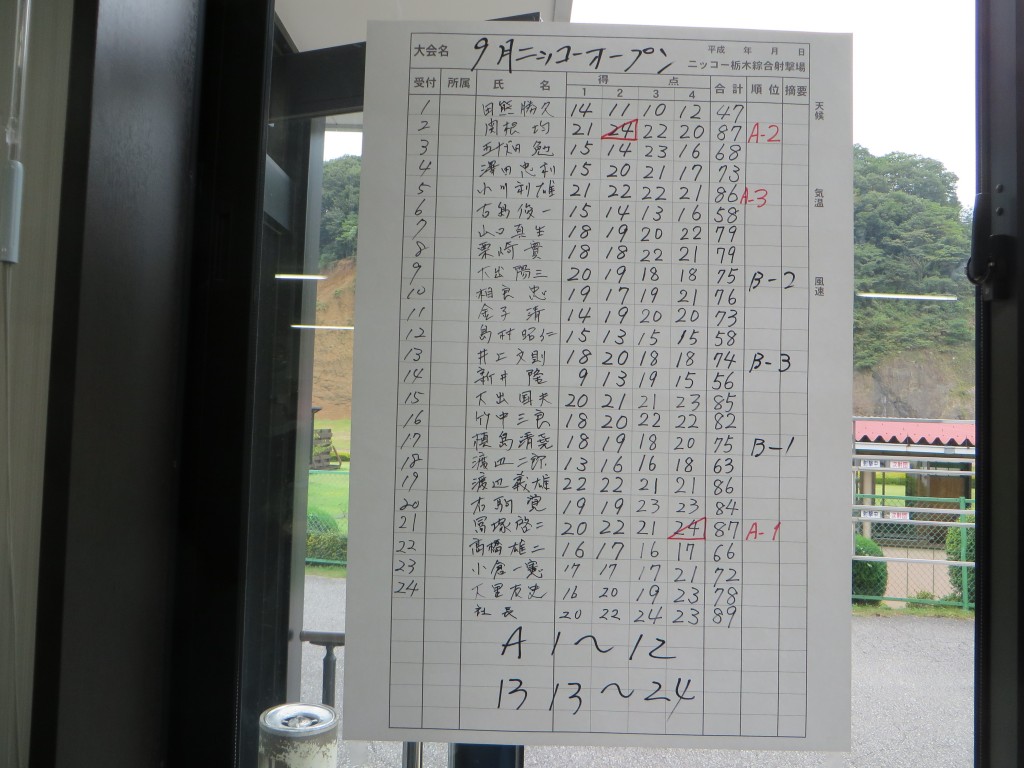 大会名 9月ニッコーオープン 平成 年 月 日
ニッコー栃木綜合射撃場
受付 所属 氏 名 得 点 合計 順位 摘要
1 2 3 4
天候
気温
風速
1 田熊勝久 14 11 10 12 47
2 関根 均 21 24 22 20 87 A-2
3 五十畑 勉 15 14 23 16 68
4 澤田忠利 15 20 21 17 73
5 小川利雄 21 22 22 21 86 A-3
6 古島俊一 15 14 13 16 58
7 山口真生 18 19 20 22 79
8 栗崎 實 18 18 22 21 79
9 大出陽三 20 19 18 18 75 B-2
10 相良 忠 19 17 19 21 76
11 金子 清 14 19 20 20 73
12 島村昭仁 15 13 15 15 58
13 井上文則 18 20 18 18 74 B-3
14 新井 隆 9 13 19 15 56
15 大出国夫 20 21 21 23 85
16 竹中三良 18 20 22 22 82
17 島清 18 19 18 20 75 B-1
18 渡辺二郎 13 16 16 18 63
19 渡辺義雄 22 22 21 21 86
20 寛 19 19 23 23 84
21 塚啓二 20 22 21 24 87 A-1
22 髙橋雄二 16 17 16 17 66
23 小倉一寛 17 17 17 21 72
24 大里友 16 20 19 23 78
社長 20 22 24 23 89
A 1〜12
13 13〜24